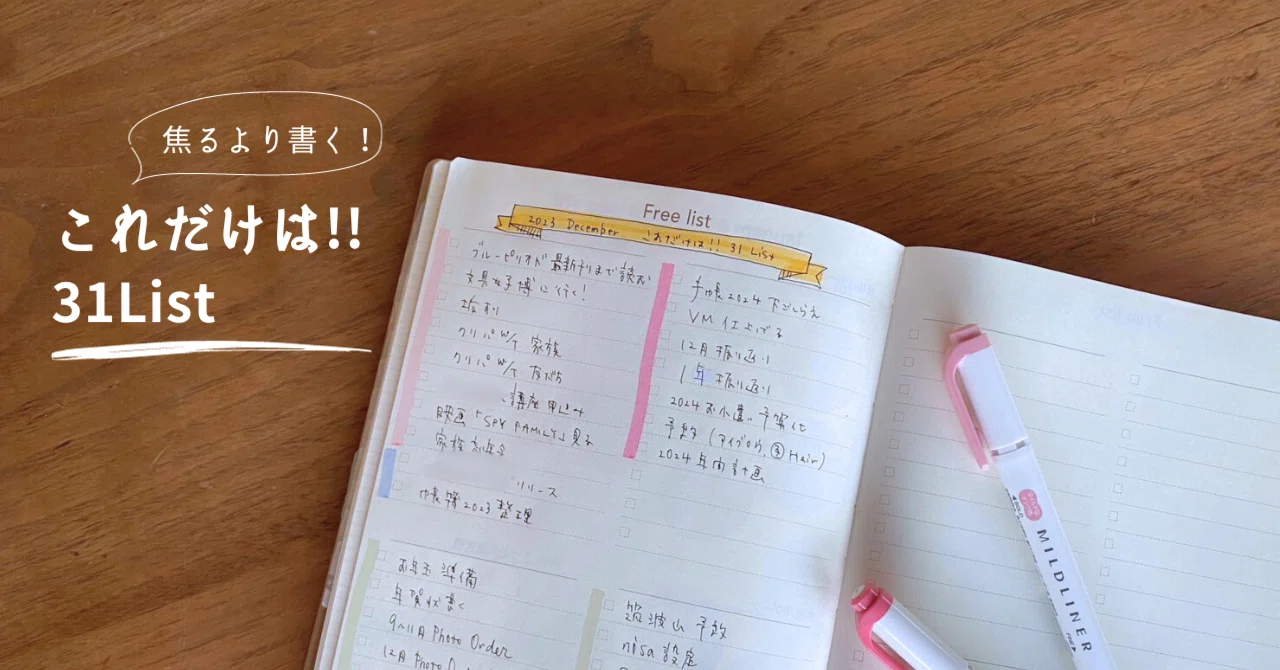 焦るより書く！
これだけは!!
31List
Free list
2023 December これだけは!! 31 List
ブルーピリオド最新刊まで読む
文具女子博に行く！
クリパ w/ 家族
クリパ w/ 友だち
講座申込み
映画「SPY FAMILY」見る
家族忘年会
リリース
帳簿2023整理
手帳2024下ごしらえ
VM仕上げる
12月振り返り
1年振り返り
2024お小遣い予算化
予約(アイブロウ, Hair)
2024年間計画
お年玉準備
年賀状書く
9~11月 Photo Order
12月 Photo
筑波山予約
nisa設定
MILDLINER